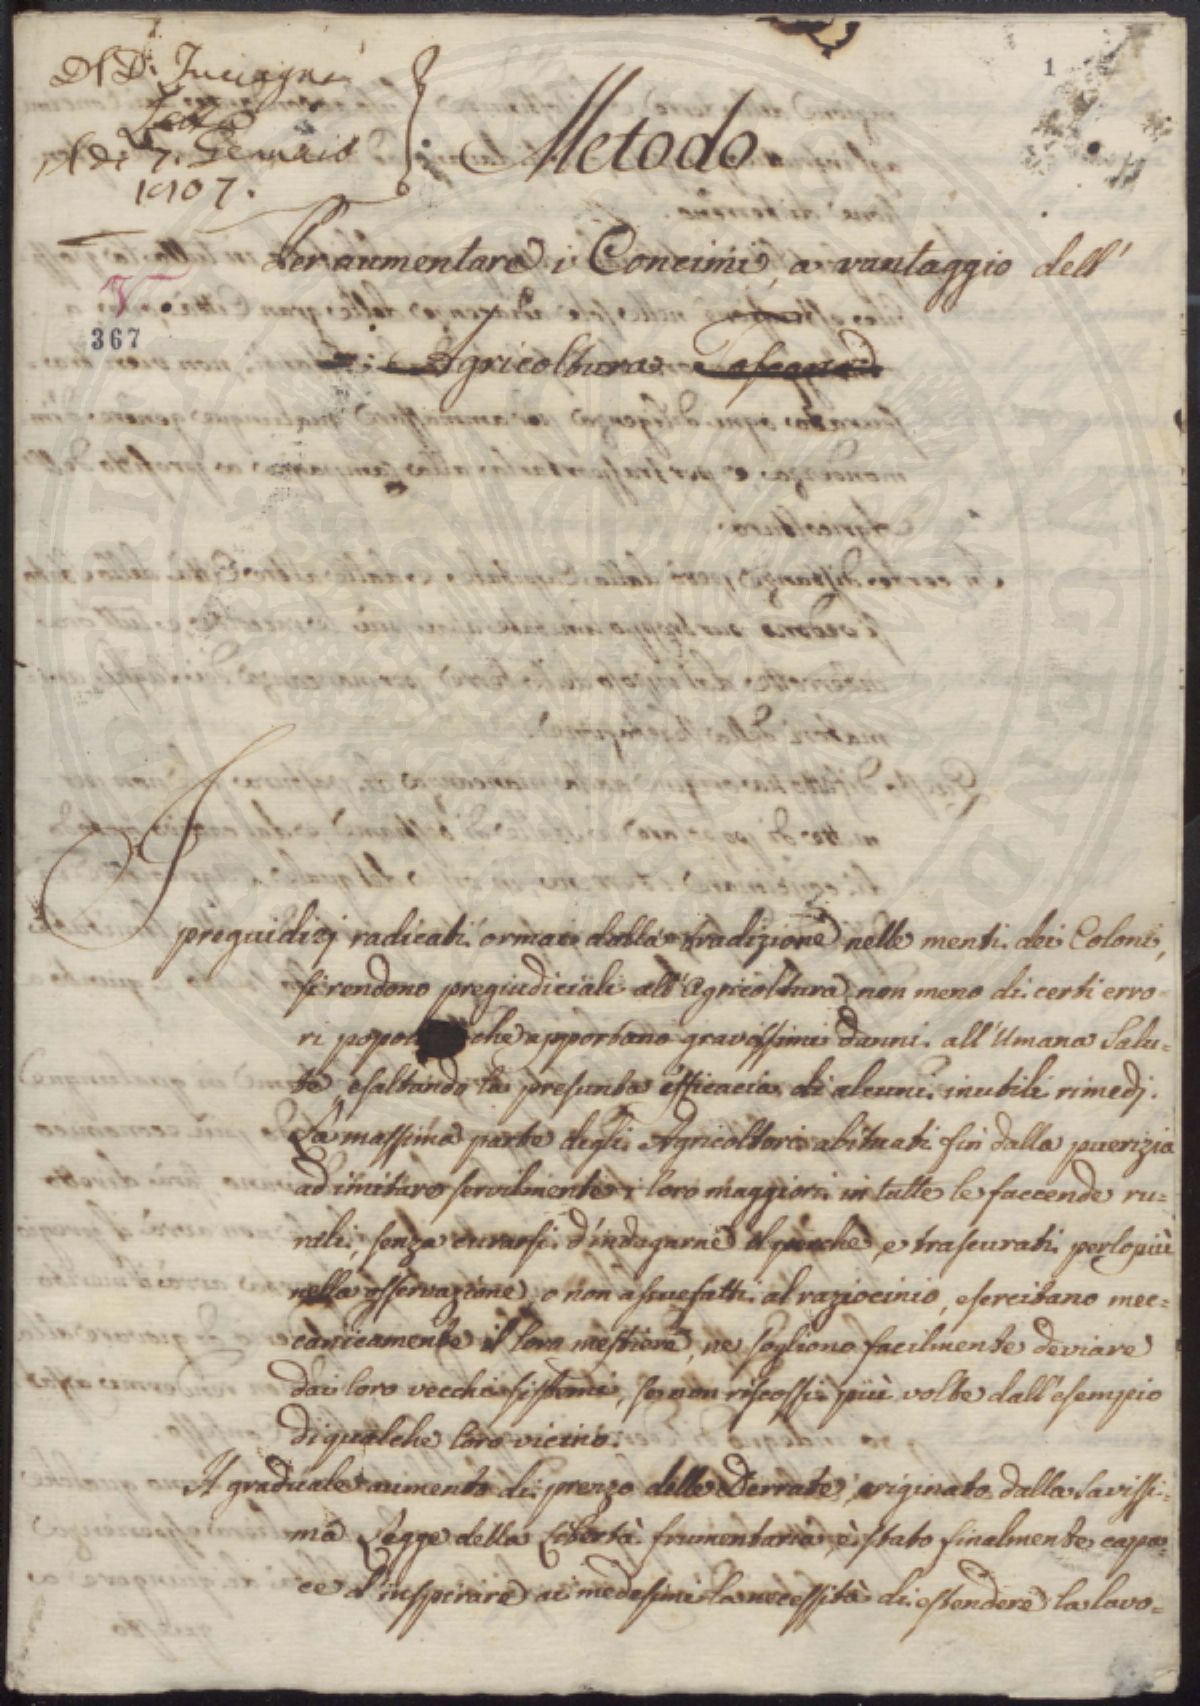 Del D.r
Letta
A dì 7. Gennaio
1807.
1
Metodo
Per aumentare i Concimi, a vantaggio dell'
Agricoltura Toscana
V.
367
I preguidizj radicati ormai dalla tradizione nelle menti dei Coloni,
si rendono pregiudiciali all'Agricoltura non meno di certi erro-
ri popol che apportano gravissimi danni all'Umana Salu=
te, esaltando la presunta efficacia di alcuni inutili rimedj.
La massima parte degli Agricoltori abituati fin dalla puerizia
ad imitare servilmente i loro maggiori in tutte le faccende ru=
rali, senza curarsi d'indagarne il perchè, e trascurati perlopiù
nella osservazione, o non assuefatti al raziocinio, esercitano mec=
canicamente il loro mestiere, ne sogliono facilmente deviare
dai loro vecchi sistemi, se non riscossi più volte dall'esempio
di qualche loro vicino.
Il graduale aumento di prezzo delle Derrate, originato dalla savissi=
ma Legge della Libertà frumentaria, è stato finalmente capa=
ce d'inspirare ai medesimi la necessità di estendere la lavo=